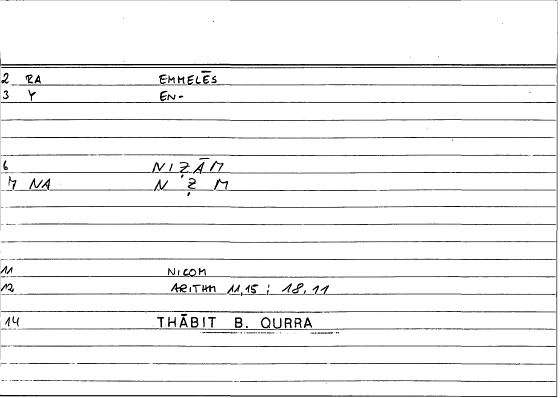 2 RA EMMELĒS
3 Y EN-
6 NIẒĀM
7 NA N Ẓ M
11 NICOM
12 ARITHM 11,15 ; 18,11
14 THĀBIT B. QURRA